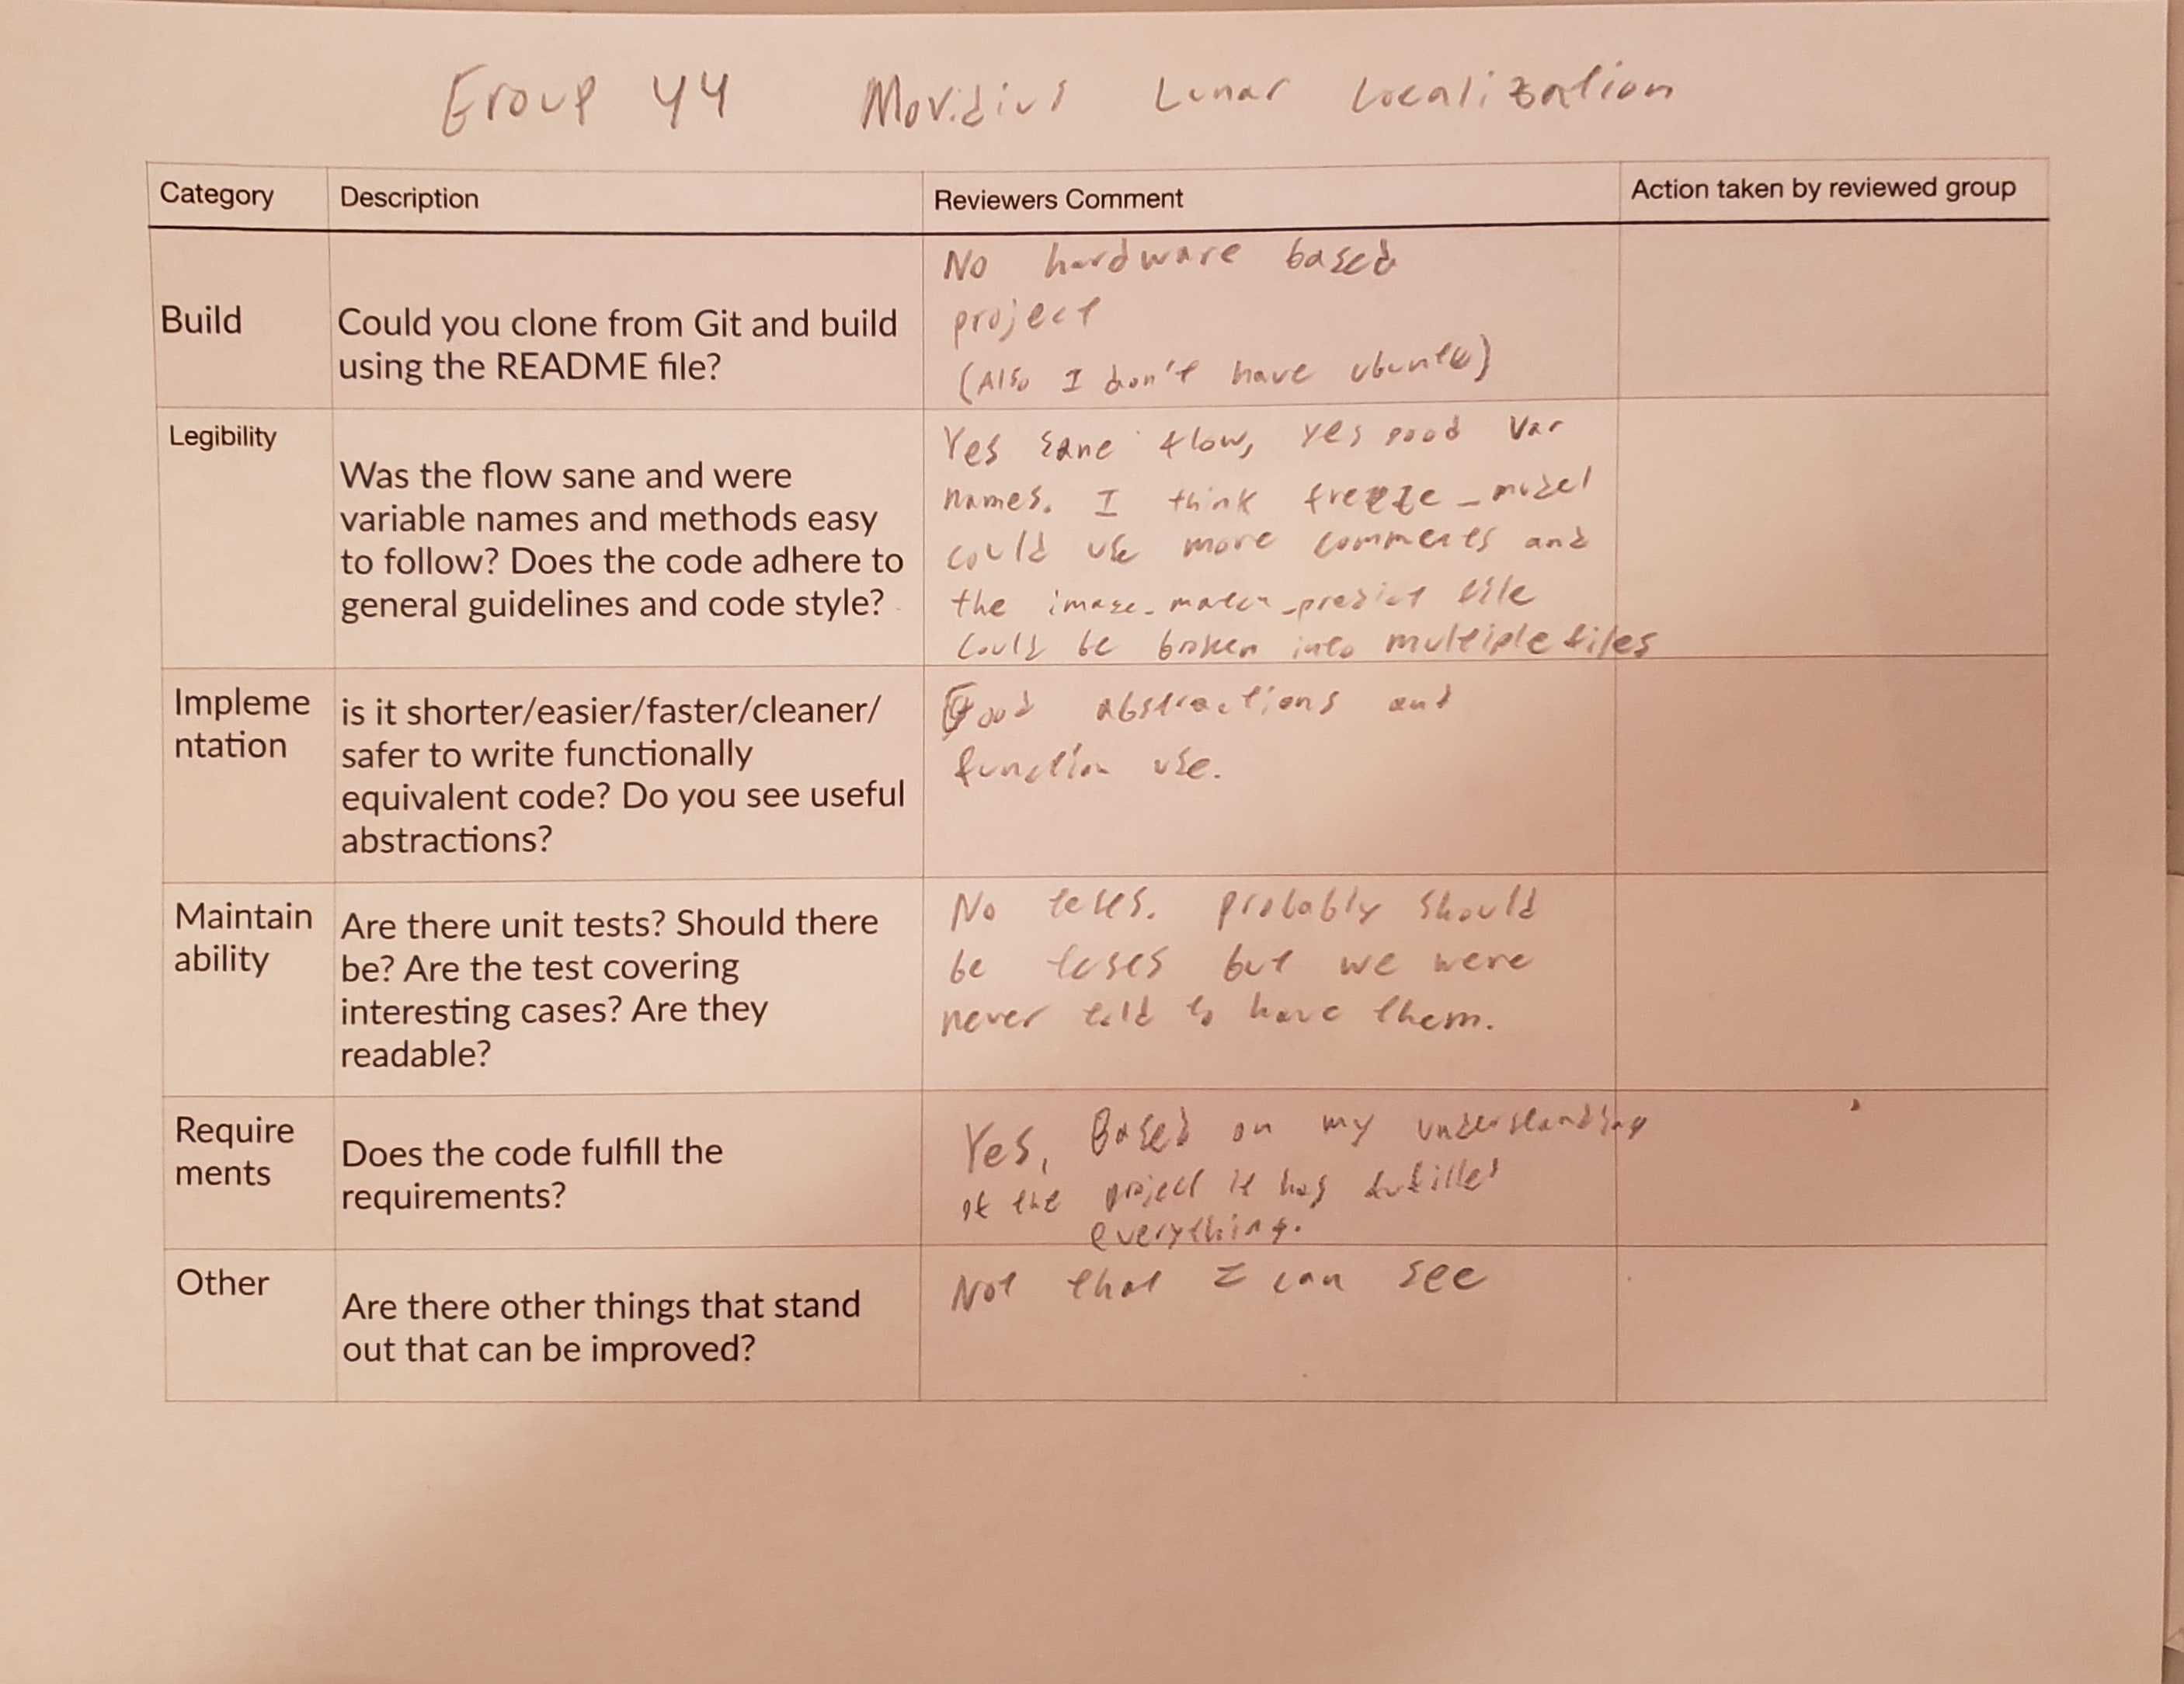 Group 44 Movidius Lunar Localization
Category Description Reviewers Comment Action taken by reviewed group
Build
Could you clone from Git and build
using the README file?
No hardware based
project
(Also I don't have ubuntu)
Legibility
Was the flow sane and were
variable names and methods easy
to follow? Does the code adhere to
general guidelines and code style?
Yes sane flow, yes good var
names. I think freeze_model
could use more comments and
the image_match_predict file
could be broken into multiple files
Impleme
ntation
is it shorter/easier/faster/cleaner/
safer to write functionally
equivalent code? Do you see useful
abstractions?
Good abstractions and
function use.
Maintain
ability
Are there unit tests? Should there
be? Are the test covering
interesting cases? Are they
readable?
No tests. probably should
be tests but we were
never told to have them.
Require
ments
Does the code fulfill the
requirements?
Yes, Based on my understanding
of the project it has fufilled
everything.
Other
Are there other things that stand
out that can be improved?
Not that I can see